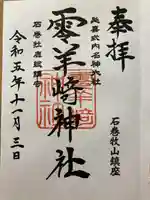 奉拝
石巻牧山鎮座
延喜式内名神大社
零羊崎神社
石巻社鹿嶋鎮守
令和五年十一月三日